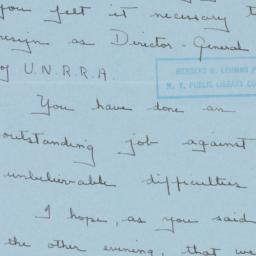 you felt it necessary t
resign as Director-General
of U.N.R.R.A.
HERBERT H. LEHMAN P
N. Y. PUBLIC LIBRARY CO
You have done an
outstanding job against
unbelievable difficulties
I hope, as you said
the other evening, that we